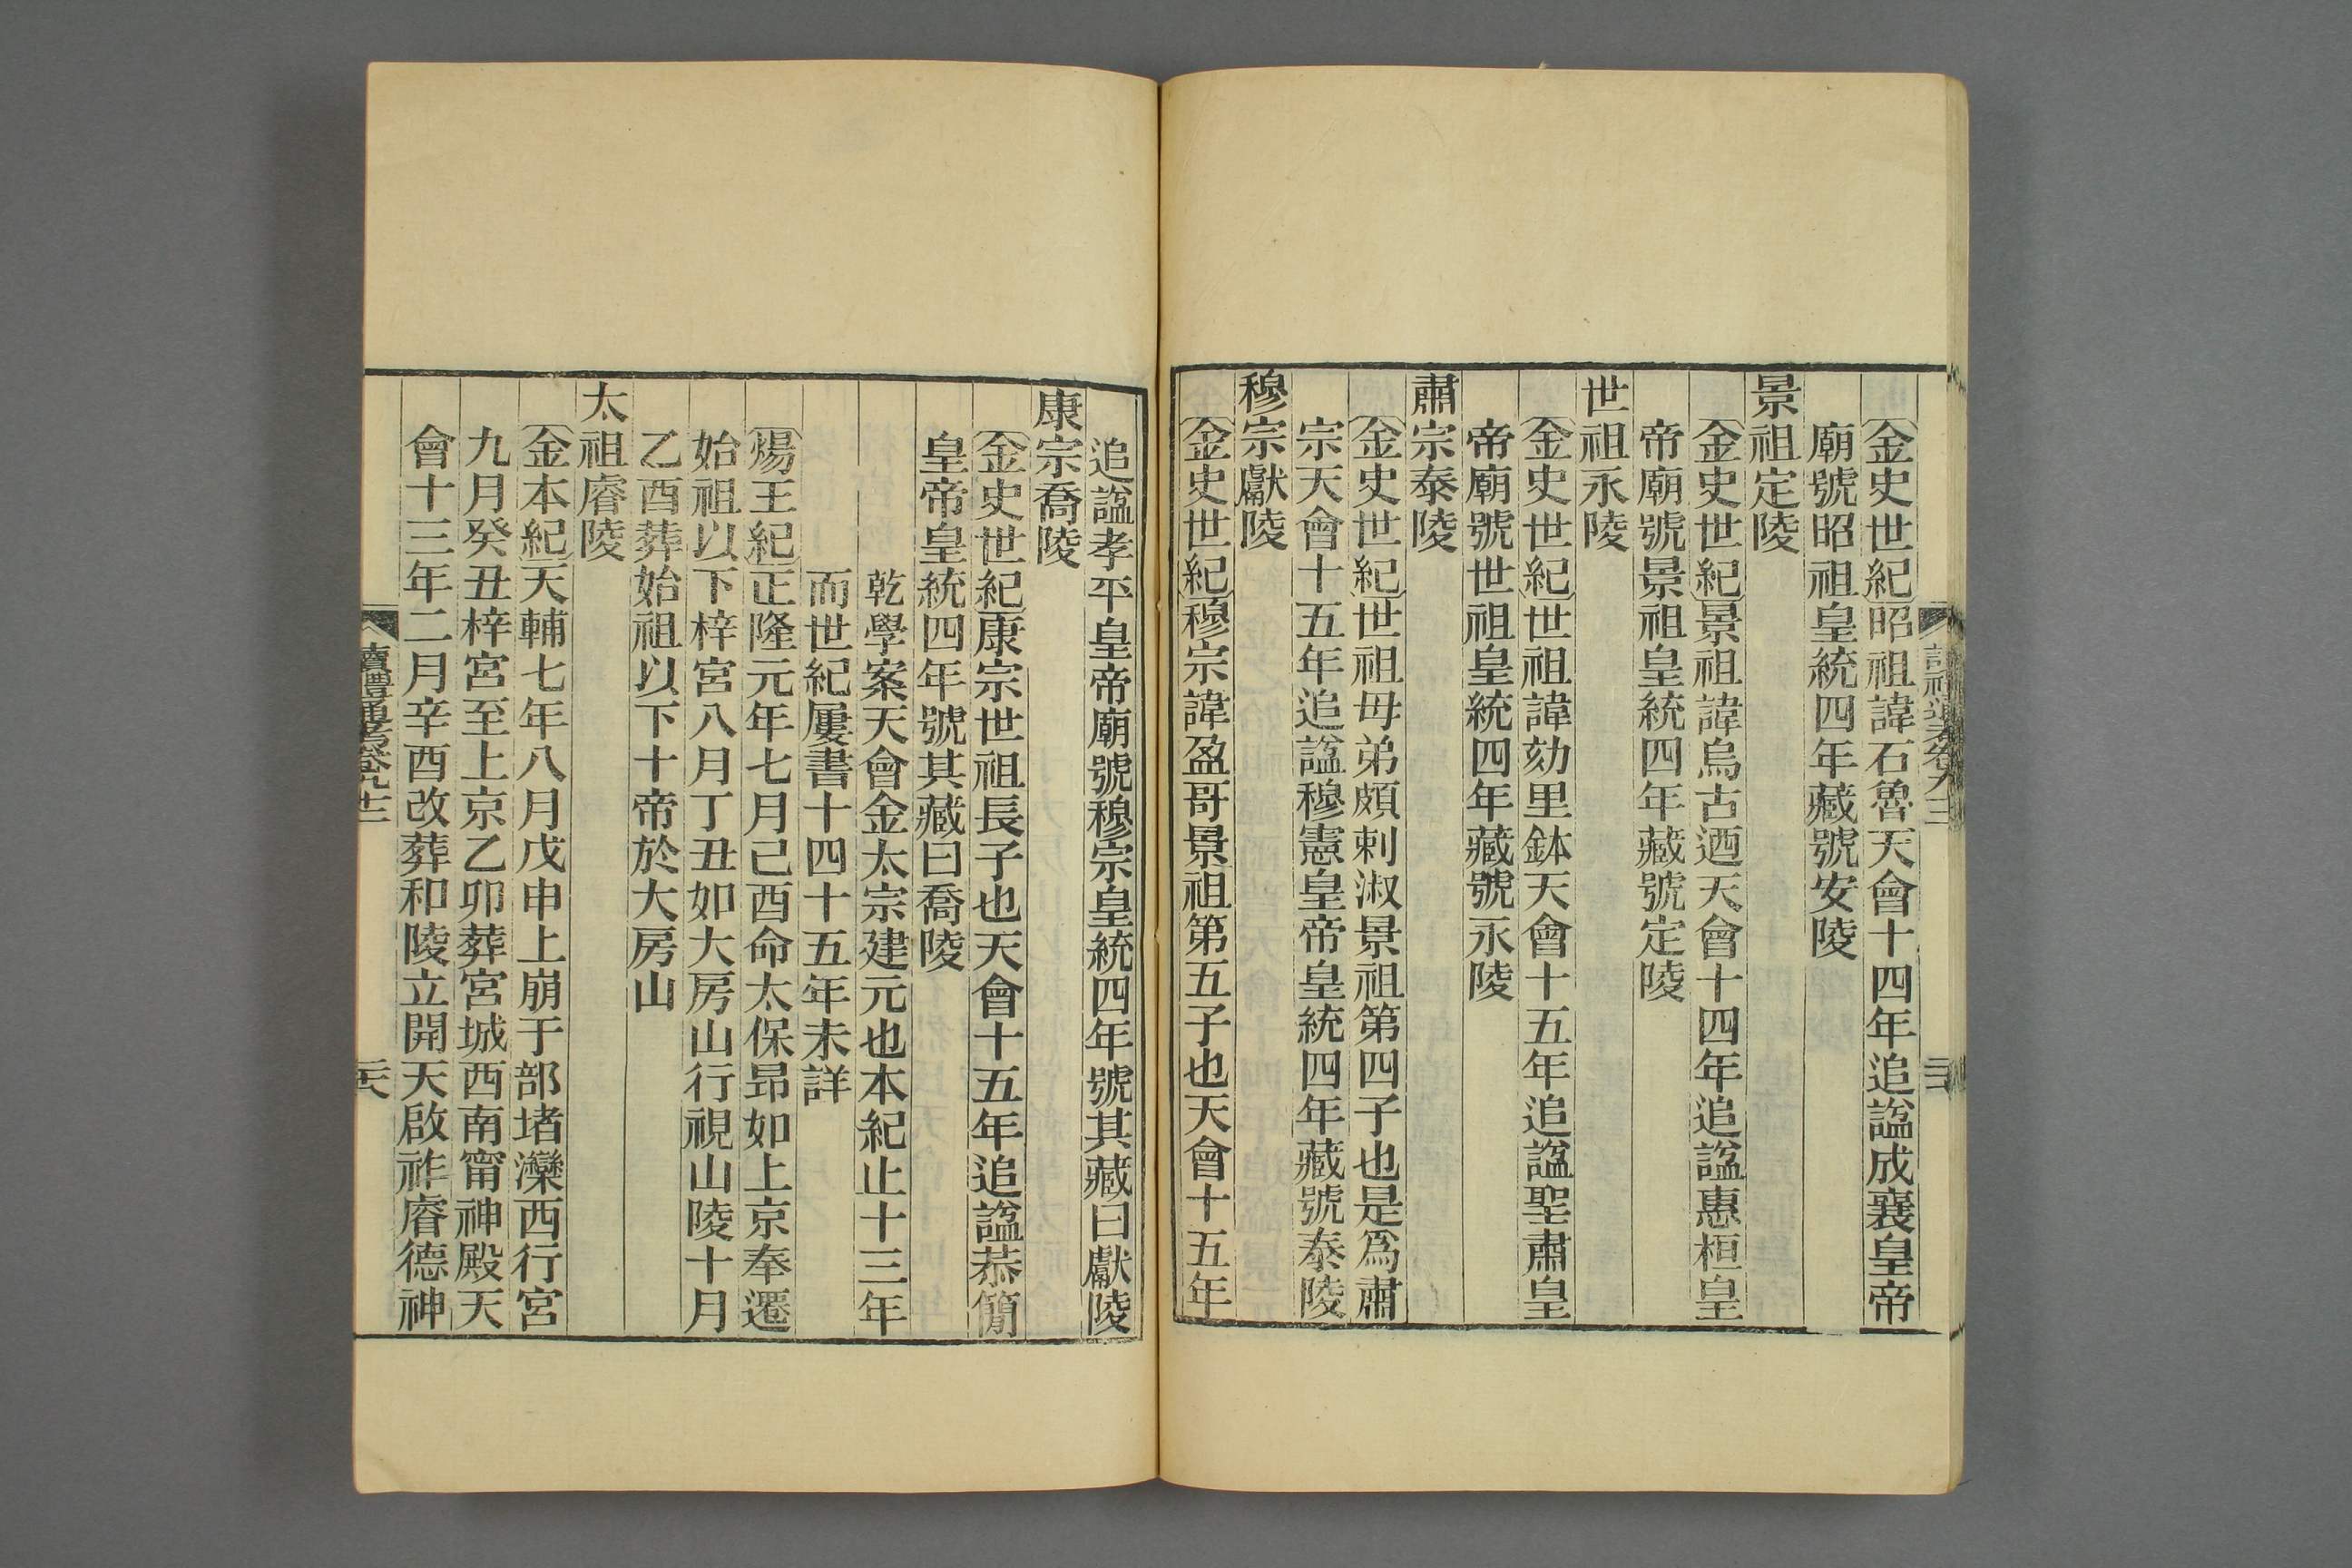 金史世紀昭祖諱石魯天會十四年追諡成襄皇帝
廟號昭祖皇統四年藏號安陵
景祖定陵
金史世紀景祖諱烏古迺天會十四年追諡惠桓皇
帝廟號景祖皇統四年藏號定陵
世祖永陵
金史世紀世祖諱劾里鉢天會十五年追諡聖肅皇
帝廟號世祖皇統四年藏號永陵
肅宗泰陵
金史世紀世祖母弟頗剌淑景祖第四子也是爲肅
宗天會十五年追諡穆憲皇帝皇統四年藏號泰陵
穆宗獻陵
金史世紀穆宗諱盈哥景祖第五子也天會十五年
追諡孝平皇帝廟號穆宗皇統四年號其藏曰獻陵
康宗喬陵
金史世紀康宗世祖長子也天會十五年追諡恭簡
皇帝皇統四年號其藏曰喬陵
乾學案天會金太宗建元也本紀止十三年
而世紀屢書十四十五年未詳
煬王紀正隆元年七月己酉命太保昂如上京奉遷
始祖以下梓宮八月丁丑如大房山行視山陵十月
乙酉葬始祖以下十帝於大房山
太祖睿陵
金本紀天輔七年八月戊申上崩于部堵濼西行宮
九月癸丑梓宮至上京乙卯葬宮城西南甯神殿天
會十三年二月辛酉改葬和陵立開天啟祚睿德神
讀禮通考卷九十三
二十六